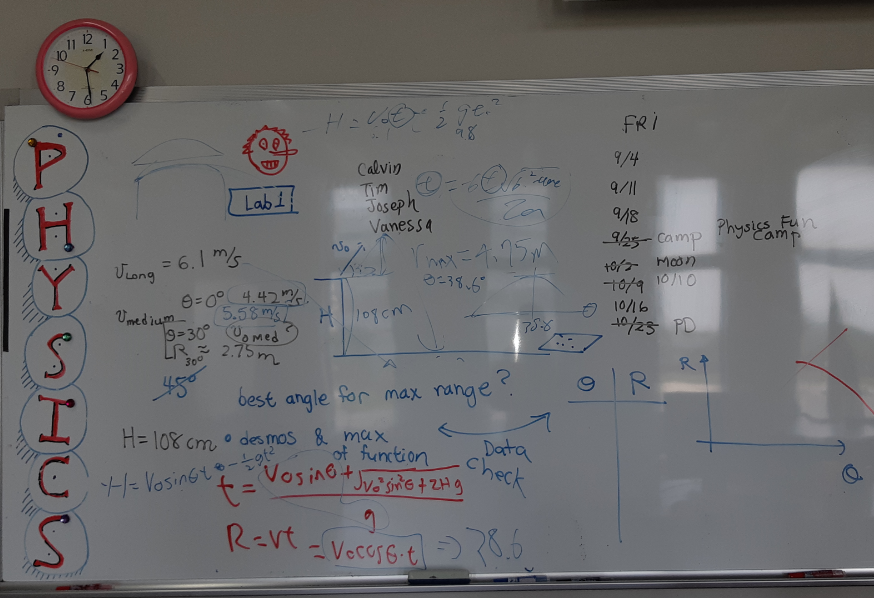 12 1 2 3 4 5 6 7 8 9 10 11
PHYSICS
Lab 1
Calvin
Tim
Joseph
Vanessa
FRI
9/4
9/11
9/18
9/25 camp Physics Fun Camp
10/2 moon
10/9 10/10
10/16
10/23 PD
v_Long = 6.1 m/s
θ=0° 4.42 m/s
v_medium 5.58 m/s
θ=30° v_0 med?
R_30° ≈ 2.75 m
45°
v_0
r_max = 4.75 m
θ=38.6°
H 108cm
38.6
θ
best angle for max range?
H=108cm • desmos & max of function
Data check
-H = V0sinθt - ½gt²
t = (V0sinθ + √(V0² sin²θ + 2Hg)) / g
R = vt = V0cosθ·t => 38.6
θ R
R
θ